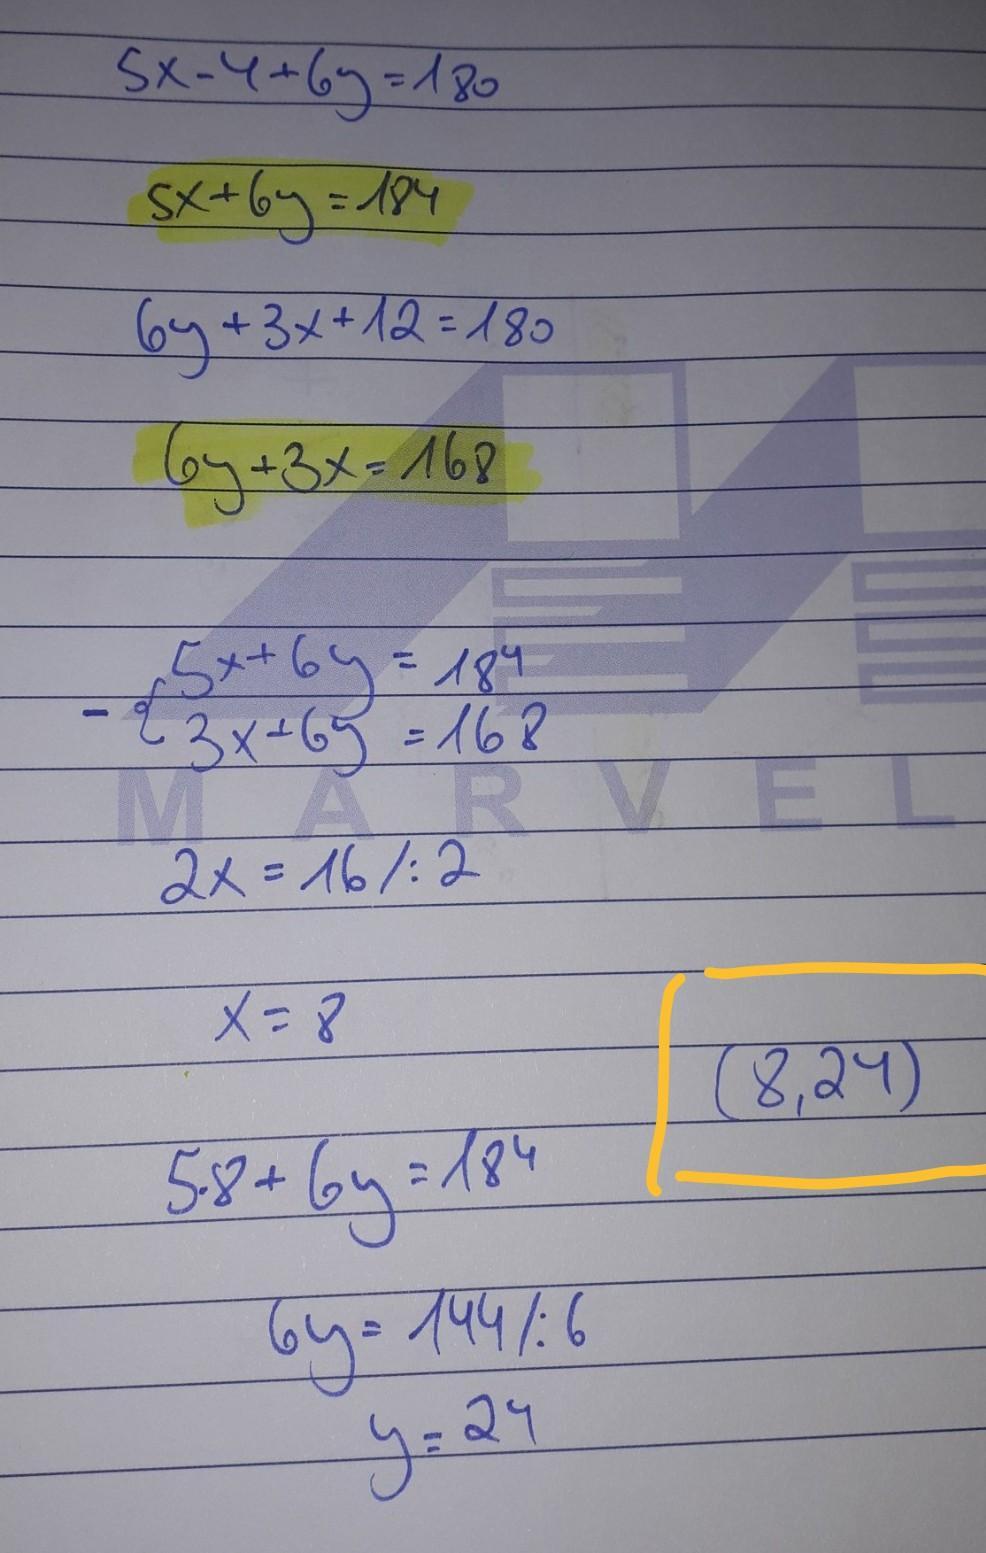 5x-4+6y=180
5x+6y=184
6y+3x+12=180
6y+3x=168
5x+6y=184
- {
3x+6y=168
MARVEL
2x=16/:2
x=8
(8,24)
5·8+6y=184
6y=144/:6
y=24